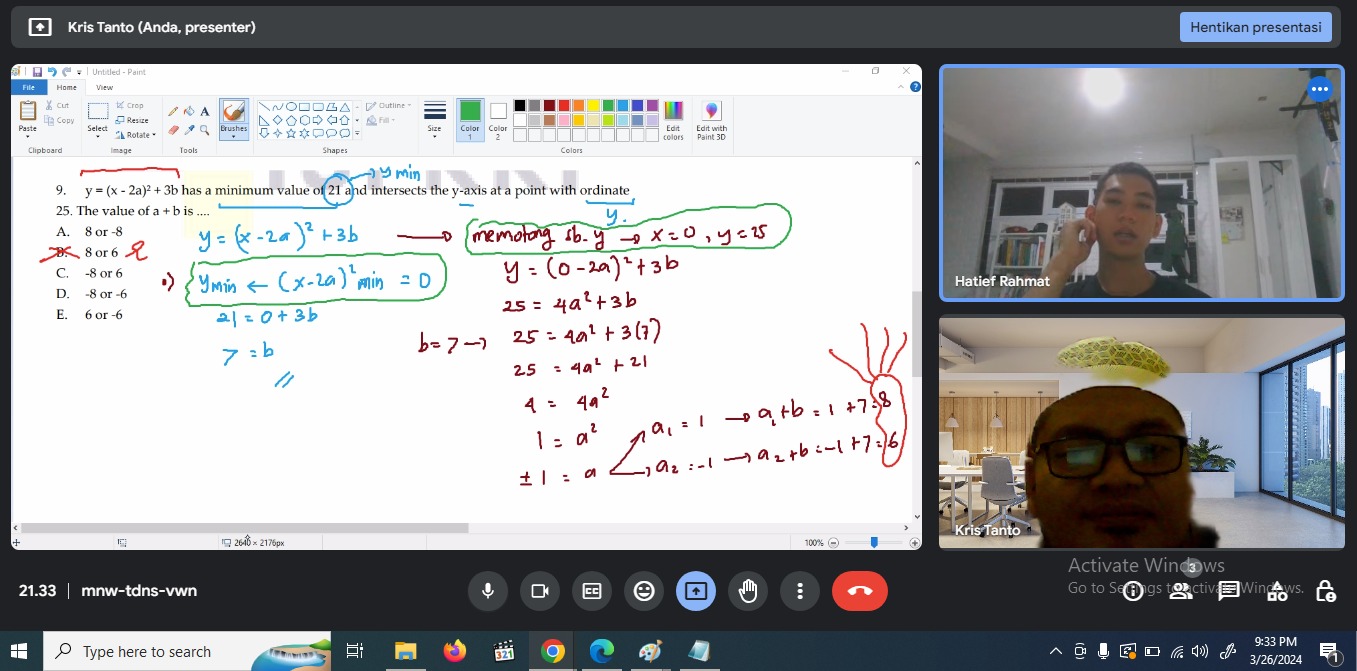 Kris Tanto (Anda, presenter)
Hentikan presentasi
Untitled - Paint
File Home View
Paste Cut Copy Select Crop Resize Rotate Brushes Size Color 1 Color 2 Edit colors Edit with Paint 3D
Outline Fill
Clipboard Image Tools Shapes Colors
y min
9. y = (x - 2a)² + 3b has a minimum value of 21 and intersects the y-axis at a point with ordinate
25. The value of a + b is ....
y.
A. 8 or -8
B. 8 or 6
C. -8 or 6
D. -8 or -6
E. 6 or -6
y = (x - 2a)² + 3b → memotong sb. y → x = 0, y = 25
y min ← (x - 2a)² min = 0
21 = 0 + 3b
7 = b
y = (0 - 2a)² + 3b
25 = 4a² + 3b
b = 7 → 25 = 4a² + 3(7)
25 = 4a² + 21
4 = 4a²
1 = a²
± 1 = a
a₁ = 1 → a₁ + b = 1 + 7 = 8
a₂ = -1 → a₂ + b = -1 + 7 = 6
2640 × 2176px
100%
Hatief Rahmat
Kris Tanto
Activate Windows
Go to Settings to activate Windows.
21.33 mnw-tdns-vwn
3
Type here to search
321
9:33 PM
3/26/2024
1